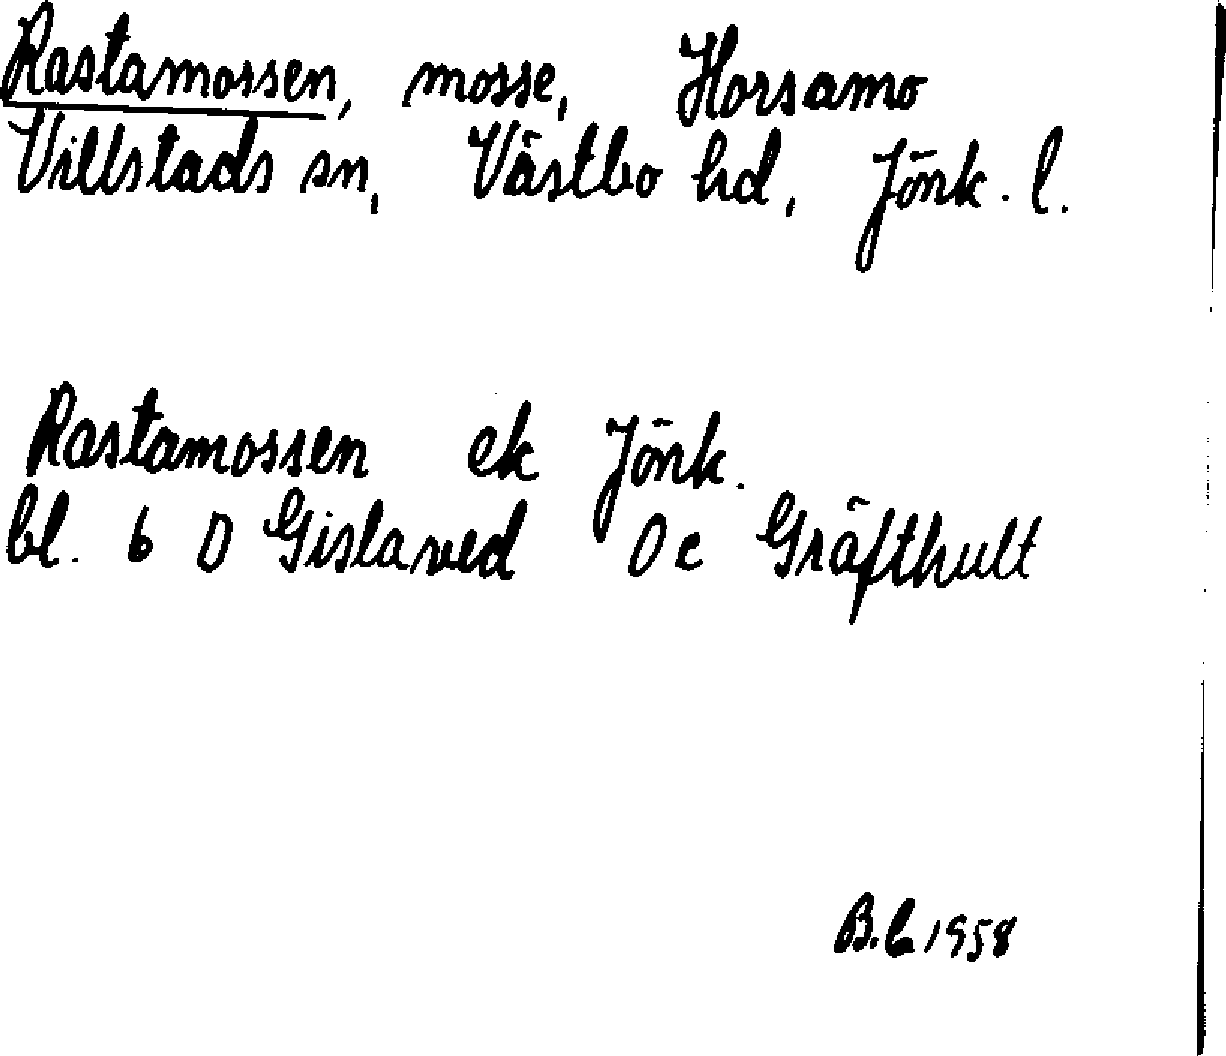 Rastamossen, mosse, Horsamo
Villstads sn, Västbo hd, Jönk. l.
Rastamossen ek Jönk.
bl. 6 D Gislaved 0 c Gräfthult
1958